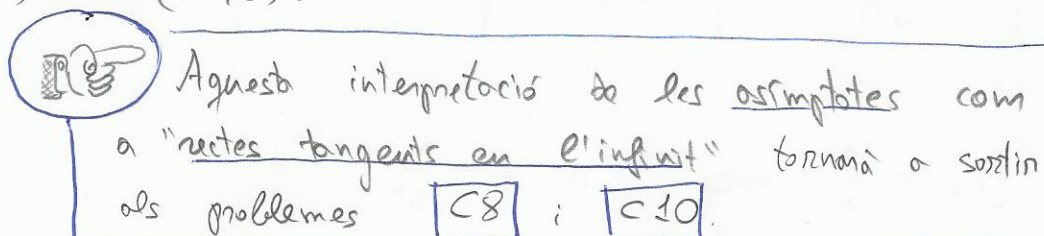 Aquesta interpretació de les assímptotes com
a "rectes tangents en l'infinit" tornarà a sortir
als problemes C8 i C10.